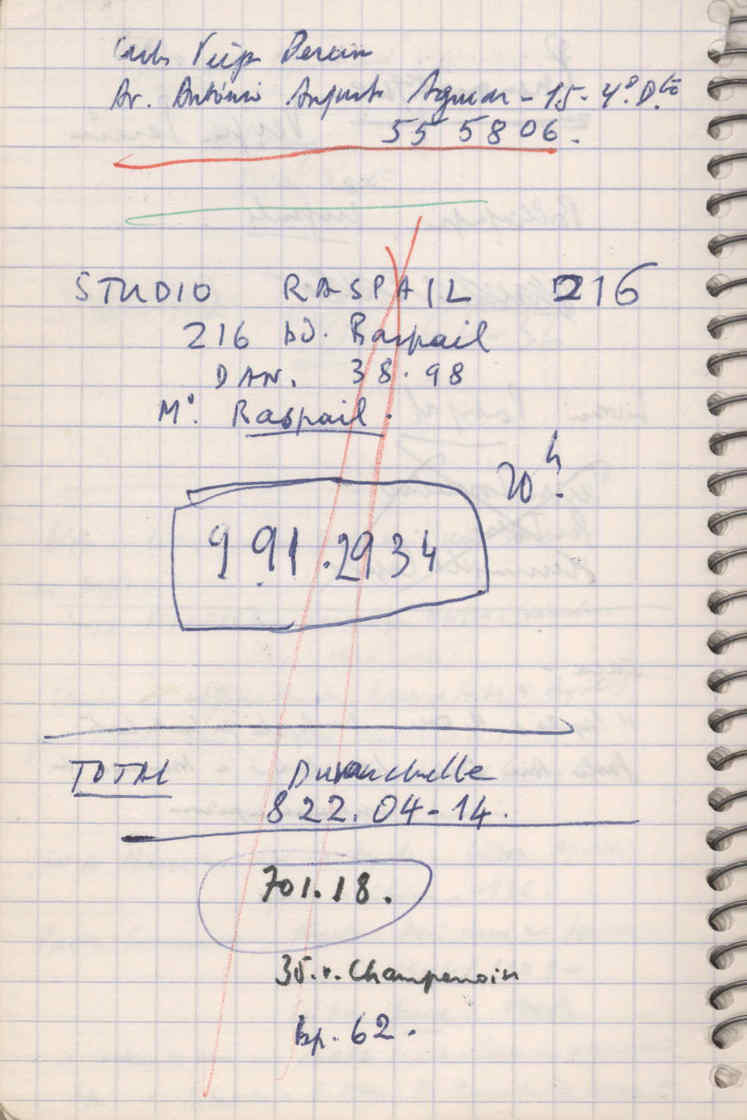 Carlos Veiga Pereira
Av. António Augusto Aguiar - 15 - 4º Dto
55 58 06.
STUDIO RASPAIL 216
216 bd. Raspail
DAN. 38.98
Mº. Raspail.
20h.
991.2934
TOTAL
822.04-14.
701.18.
35.r. Champenoin
bp. 62.